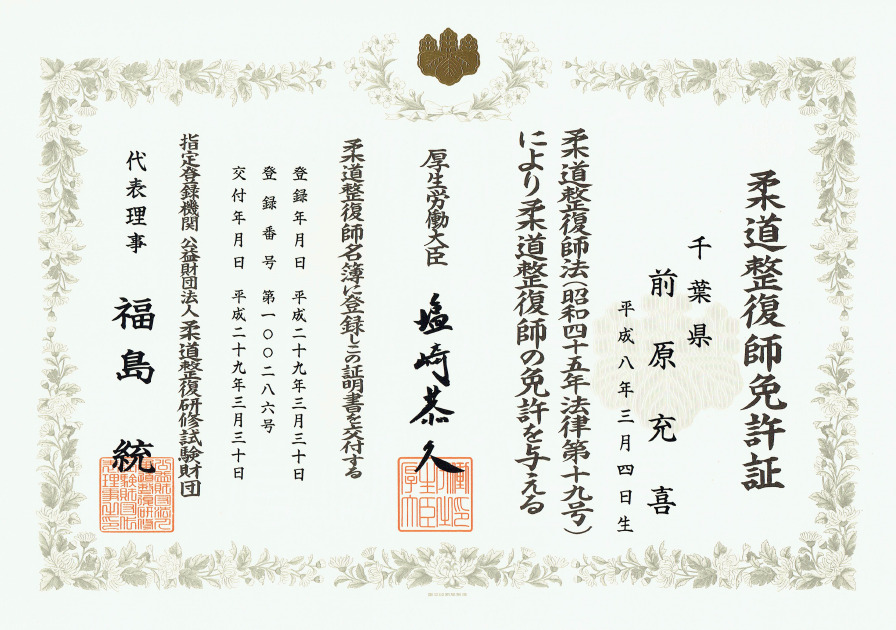 柔道整復師免許証
千葉県
前原充喜
平成八年三月四日生
柔道整復師法(昭和四十五年法律第十九号)
により柔道整復師の免許を与える
厚生労働大臣 塩崎恭久
柔道整復師名簿に登録しこの証明書を交付する
登録年月日 平成二十九年三月三十日
登録番号 第一〇〇二八六号
交付年月日 平成二十九年三月三十日
指定登録機関 公益財団法人柔道整復研修試験財団
代表理事 福島統